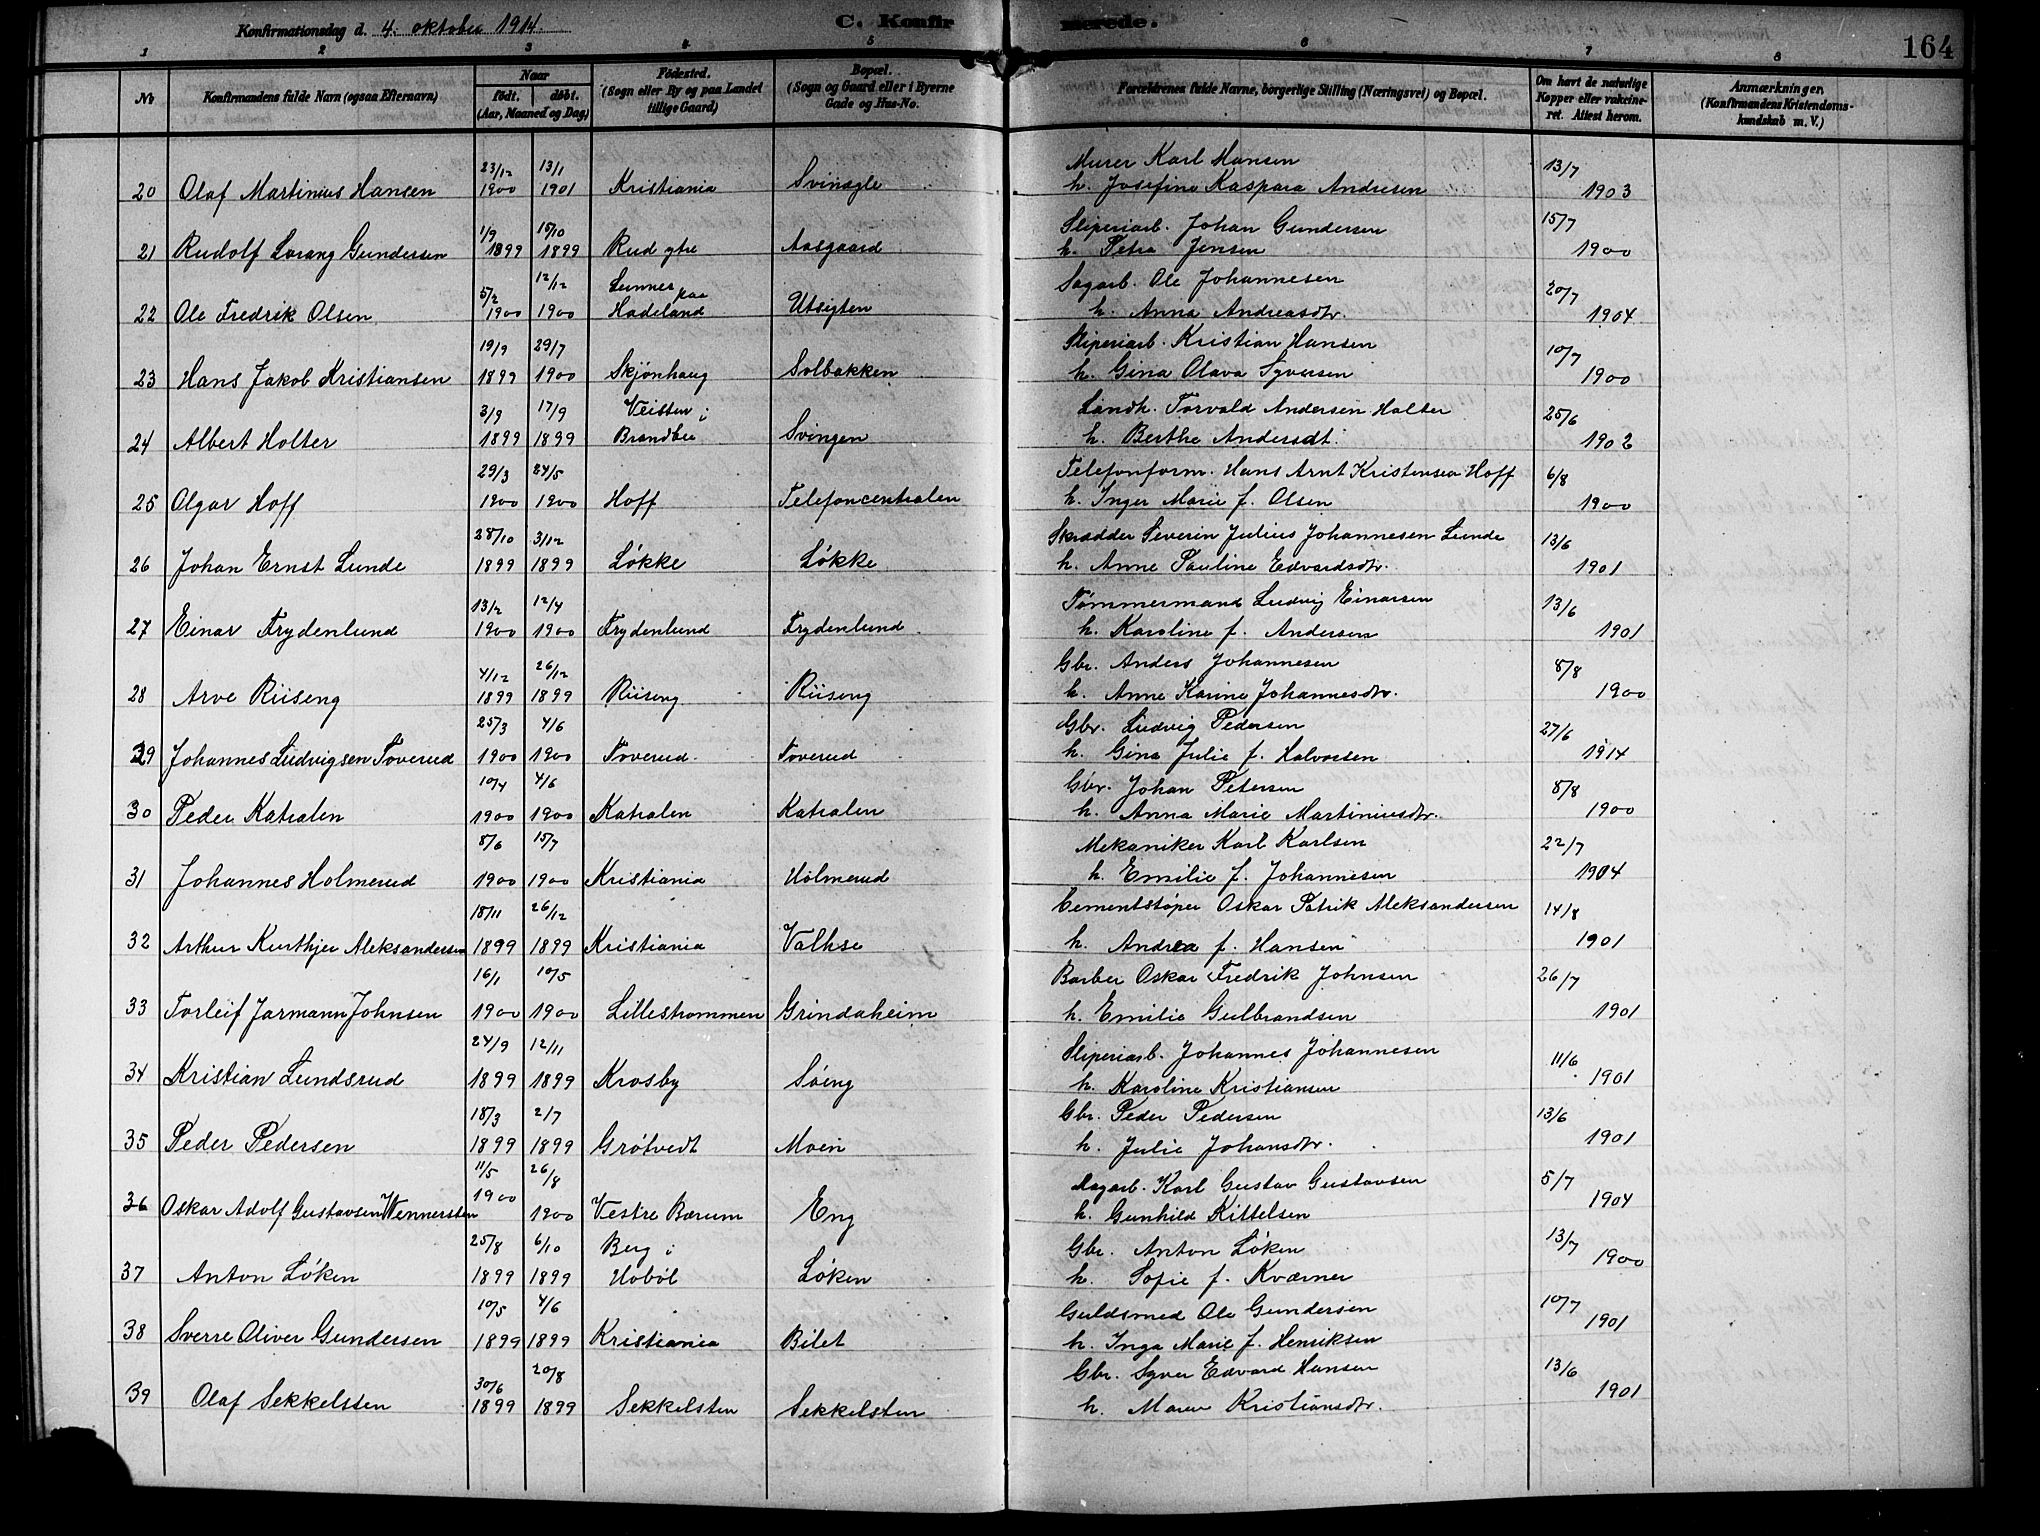 Konfirmationsdag d. 4. oktober 1914.
C. Konfirmerede.
164
1 2 3 4 5 6 7 8
No
Konfirmandens fulde Navn (ogsaa Efternavn)
Naar
født. døbt.
(Aar, Maaned og Dag)
Fødested.
(Sogn eller By og paa Landet
tillige Gaard)
Bopæl.
(Sogn og Gaard eller i Byerne
Gade og Hus-No.
Forældrenes fulde Navne, borgerlige Stilling (Næringsvei) og Bopæl.
Om havt de naturlige
Kopper eller vakcine-
ret. Attest herom.
Anmærkninger.
(Konfirmandens Kristendoms-
kundskab m. V.)
23/12 13/1 Murer Karl Hansen 13/7
20 Olaf Martinius Hansen 1900 1901 Kristiania Svinægle h. Josefine Kaspara Andresen 1903
1/9 15/10 Sliperiarb. Johan Gundersen 15/7
21 Rudolf Lorang Gundersen 1899 1899 Rud ytre Aasgaard h. Petra Jensen 1900
5/2 12/12 Lunner paa Sagarb. Ole Johannesen 20/7
22 Ole Fredrik Olsen 1900 1900 Hadeland Utsigten h. Anna Andreasdtr. 1904
19/9 29/7 Sliperiarb. Kristian Hansen 10/7
23 Hans Jakob Kristiansen 1899 1900 Skjønhaug Solbakken h. Gina Olava Syversen 1900
3/9 17/9 Veisten i Landh. Torvald Andersen Holter 25/6
24 Albert Holter 1899 1899 Brandbu Svingen h. Berthe Andersdt. 1902
29/3 24/5 Telefonform. Hans Arnt Kristensen Hoff 6/8
25 Olgar Hoff 1900 1900 Hoff Telefoncentralen h. Inger Marie f. Olsen 1900
28/10 3/12 Skrædder Severin Julius Johannesen Lunde 13/6
26 Johan Ernst Lunde 1899 1899 Løkke Løkke h. Anne Pauline Edvardsdtr. 1901
13/2 12/4 Tømmermand Ludvig Einarsen 13/6
27 Einar Frydenlund 1900 1900 Frydenlund Frydenlund h. Karoline f. Andersen 1901
4/12 26/12 Gbr. Anders Johannesen 8/8
28 Arve Riiseng 1899 1899 Riiseng Riiseng h. Anne Karine Johannesdtr. 1900
25/3 4/6 Gbr. Ludvig Pedersen 27/6
29 Johannes Ludvigsen Toverud 1900 1900 Toverud. Toverud h. Gina Julie f. Halvorsen 1914
10/4 4/6 Gbr. Johan Petersen 8/8
30 Peder Katralen 1900 1900 Katralen Katralen h. Anna Marie Martiniusdtr. 1900
8/6 15/7 Mekaniker Karl Karlsen 22/7
31 Johannes Holmerud 1900 1900 Kristiania Holmerud h. Emilie f. Johannesen 1904
18/11 26/12 Cementstøper Oskar Patrik Aleksandersen 14/8
32 Arthur Kurthjer Aleksandersen 1899 1899 Kristiania Valhse h. Andrea f. Hansen 1901
16/1 10/5 Barber Oskar Fredrik Johnsen 26/7
33 Torleif Jarmann Johnsen 1900 1900 Lillestrømmen Grindaheim h. Emilie Gulbrandsen 1901
24/9 12/11 Sliperiarb. Johannes Johannesen 11/6
34 Kristian Lundsrud 1899 1899 Krosby Søeng h. Karoline Kristiansen 1901
18/3 2/7 Gbr. Peder Pedersen 13/6
35 Peder Pedersen 1899 1899 Grøtvedt Moen h. Julie Johansdtr. 1901
11/5 26/8 Sagarb. Karl Gustav Gustavsen 5/7
36 Oskar Adolf Gustavsen Wennersten 1900 1900 Vestre Bærum Eng h. Gunhild Kittelsen 1904
25/8 6/10 Berg i Gbr. Anton Løken 13/7
37 Anton Løken 1899 1899 Hobøl Løken h. Sofie f. Kværner 1900
10/5 4/6 Guldsmed Ole Gundersen 10/7
38 Sverre Oliver Gundersen 1899 1899 Kristiania Bilet h. Inga Marie f. Henriksen 1901
30/6 20/8 Gbr. Syver Edvard Hansen 13/6
39 Olaf Sekkelsten 1899 1899 Sekkelsten Sekkelsten h. Maren Kristiansdtr. 1901